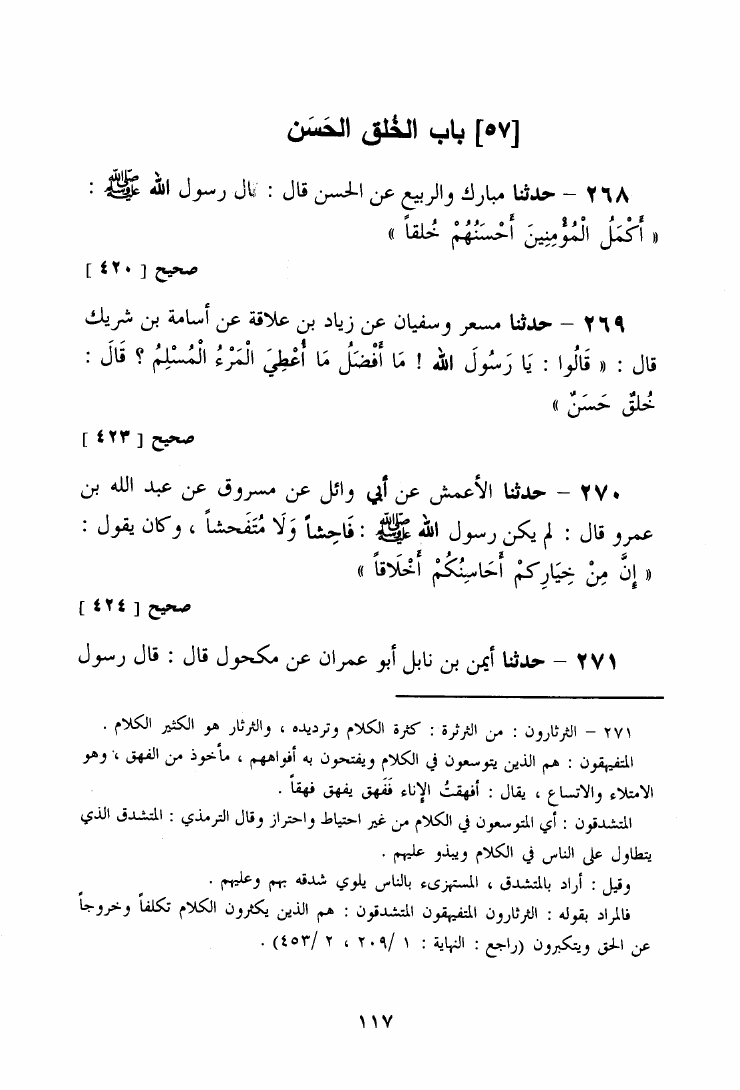 [٥٧] باب الخُلق الحَسَن
٢٦٨ – حدثنا مبارك والربيع عن الحسن قال : قال رسول الله ﷺ :
« أَكْمَلُ الْمُؤْمِنِينَ أَحْسَنُهُمْ خُلقاً »
صحيح [ ٤٢٠ ]
٢٦٩ – حدثنا مسعر وسفيان عن زياد بن علاقة عن أسامة بن شريك
قال : « قَالُوا : يَا رَسُولَ الله ! مَا أَفْضَلُ مَا أُعْطِيَ الْمَرْءُ الْمُسْلِمُ ؟ قَالَ :
خُلقٌ حَسَنٌ »
صحيح [ ٤٢٣ ]
٢٧٠ – حدثنا الأعمش عن أبي وائل عن مسروق عن عبد الله بن
عمرو قال : لم يكن رسول الله ﷺ : فَاحِشاً وَلَا مُتَفَحشاً ، وكان يقول :
« إِنَّ مِنْ خِيَارِكمْ أَحَاسِنُكُمْ أَخْلَاقاً »
صحيح [ ٤٢٤ ]
٢٧١ – حدثنا أيمن بن نابل أبو عمران عن مكحول قال : قال رسول
٢٧١ – الثرثارون : من الثرثرة : كثرة الكلام وترديده ، والثرثار هو الكثير الكلام .
المتفيهقون : هم الذين يتوسعون في الكلام ويفتحون به أفواههم ، مأخوذ من الفهق ، وهو
الامتلاء والاتساع ، يقال : أفهقتُ الإناء فَفَهق يفهق فهقاً .
المتشدقون : أي المتوسعون في الكلام من غير احتياط واحتراز وقال الترمذي : المتشدق الذي
يتطاول على الناس في الكلام ويبذو عليهم .
وقيل : أراد بالمتشدق ، المستهزىء بالناس يلوي شدقه بهم وعليهم .
فالمراد بقوله : الثرثارون المتفيهقون المتشدقون : هم الذين يكثرون الكلام تكلفاً وخروجاً
عن الحق ويتكبرون (راجع : النهاية : ١ /٢٠٩ ، ٢ /٤٥٣) .
١١٧